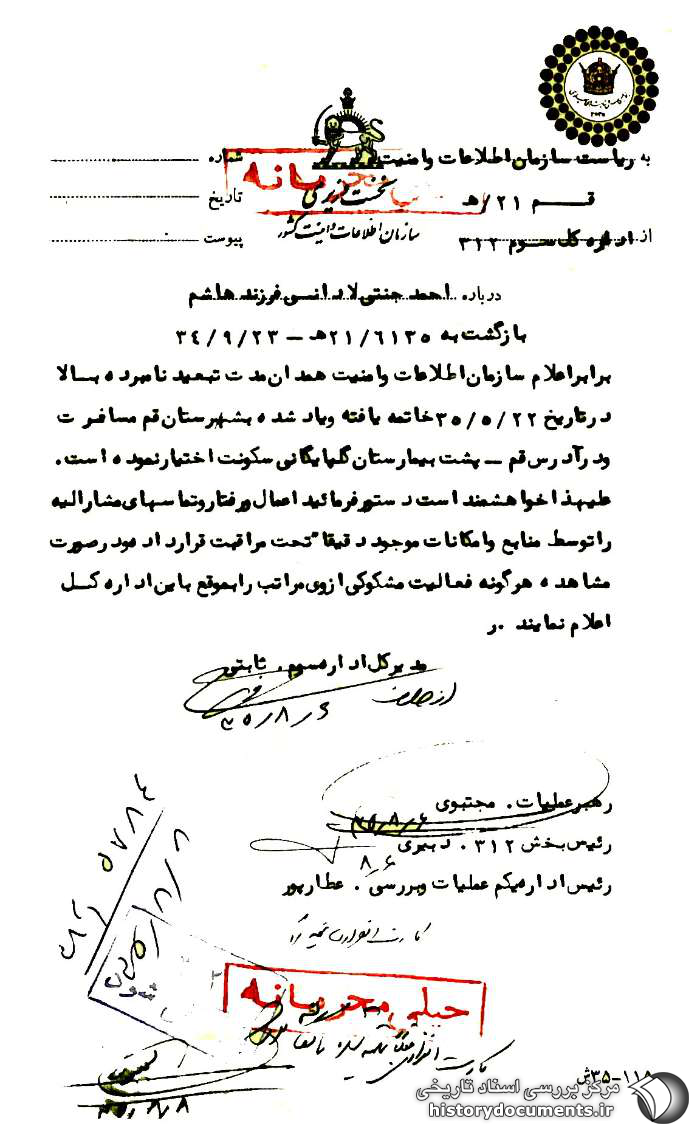 نخست وزیری
سازمان اطلاعات و امنیت کشور
به ریاست سازمان اطلاعات و امنیت
قم ۲۱/هـ
از اداره کل سوم ۳۱۲
شماره
تاریخ
پیوست
خیلی محرمانه
درباره احمد جنتی لادانسی فرزند هاشم
بازگشت به ۲۱/۶۱۳۵هـ – ۳۴/۹/۲۳
برابر اعلام سازمان اطلاعات و امنیت همدان مدت تبعید نامبرده بالا
در تاریخ ۳۵/۵/۲۲ خاتمه یافته ویاد شده بشهرستان قم مسافرت
ودر آدرس قم – پشت بیمارستان گلپایگانی سکونت اختیار نموده است.
علیهذا خواهشمند است دستور فرمائید اعمال و رفتار و تماسهای مشارالیه
را توسط منابع و امکانات موجود دقیقا" تحت مراقبت قرار داده و در صورت
مشاهده هرگونه فعالیت مشکوکی از وی مراتب را بموقع باین اداره کل
اعلام نمایند .ر
مدیر کل اداره سوم. ثابتی
از طرف
۳۵/۸/۶
رهبر عملیات. مجتبوی
۳۵/۸/۶
رئیس بخش ۳۱۲. دبیری
۸/۶
رئیس اداره یکم عملیات و بررسی. عطارپور
۵۷۸۴
۳۵/۸/۸
خیلی محرمانه
۳۵/۸/۸
۳۵-۱۱۸ش
مرکز بررسی اسناد تاریخی
historydocuments.ir